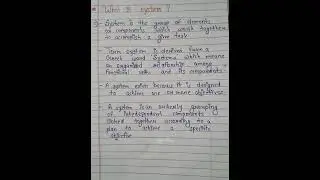 What is system ?
→ System is the group of elements
or components which work together
to accomplish a given task
- Term system is derived from a
Greek word Systema which means
an organized relationship among
functional units and its components
- A system exist because it is designed
to achieve one or more objectives
- A system is an orderly grouping
of interdependent components
linked together according to a
plan to achieve a specific
objective